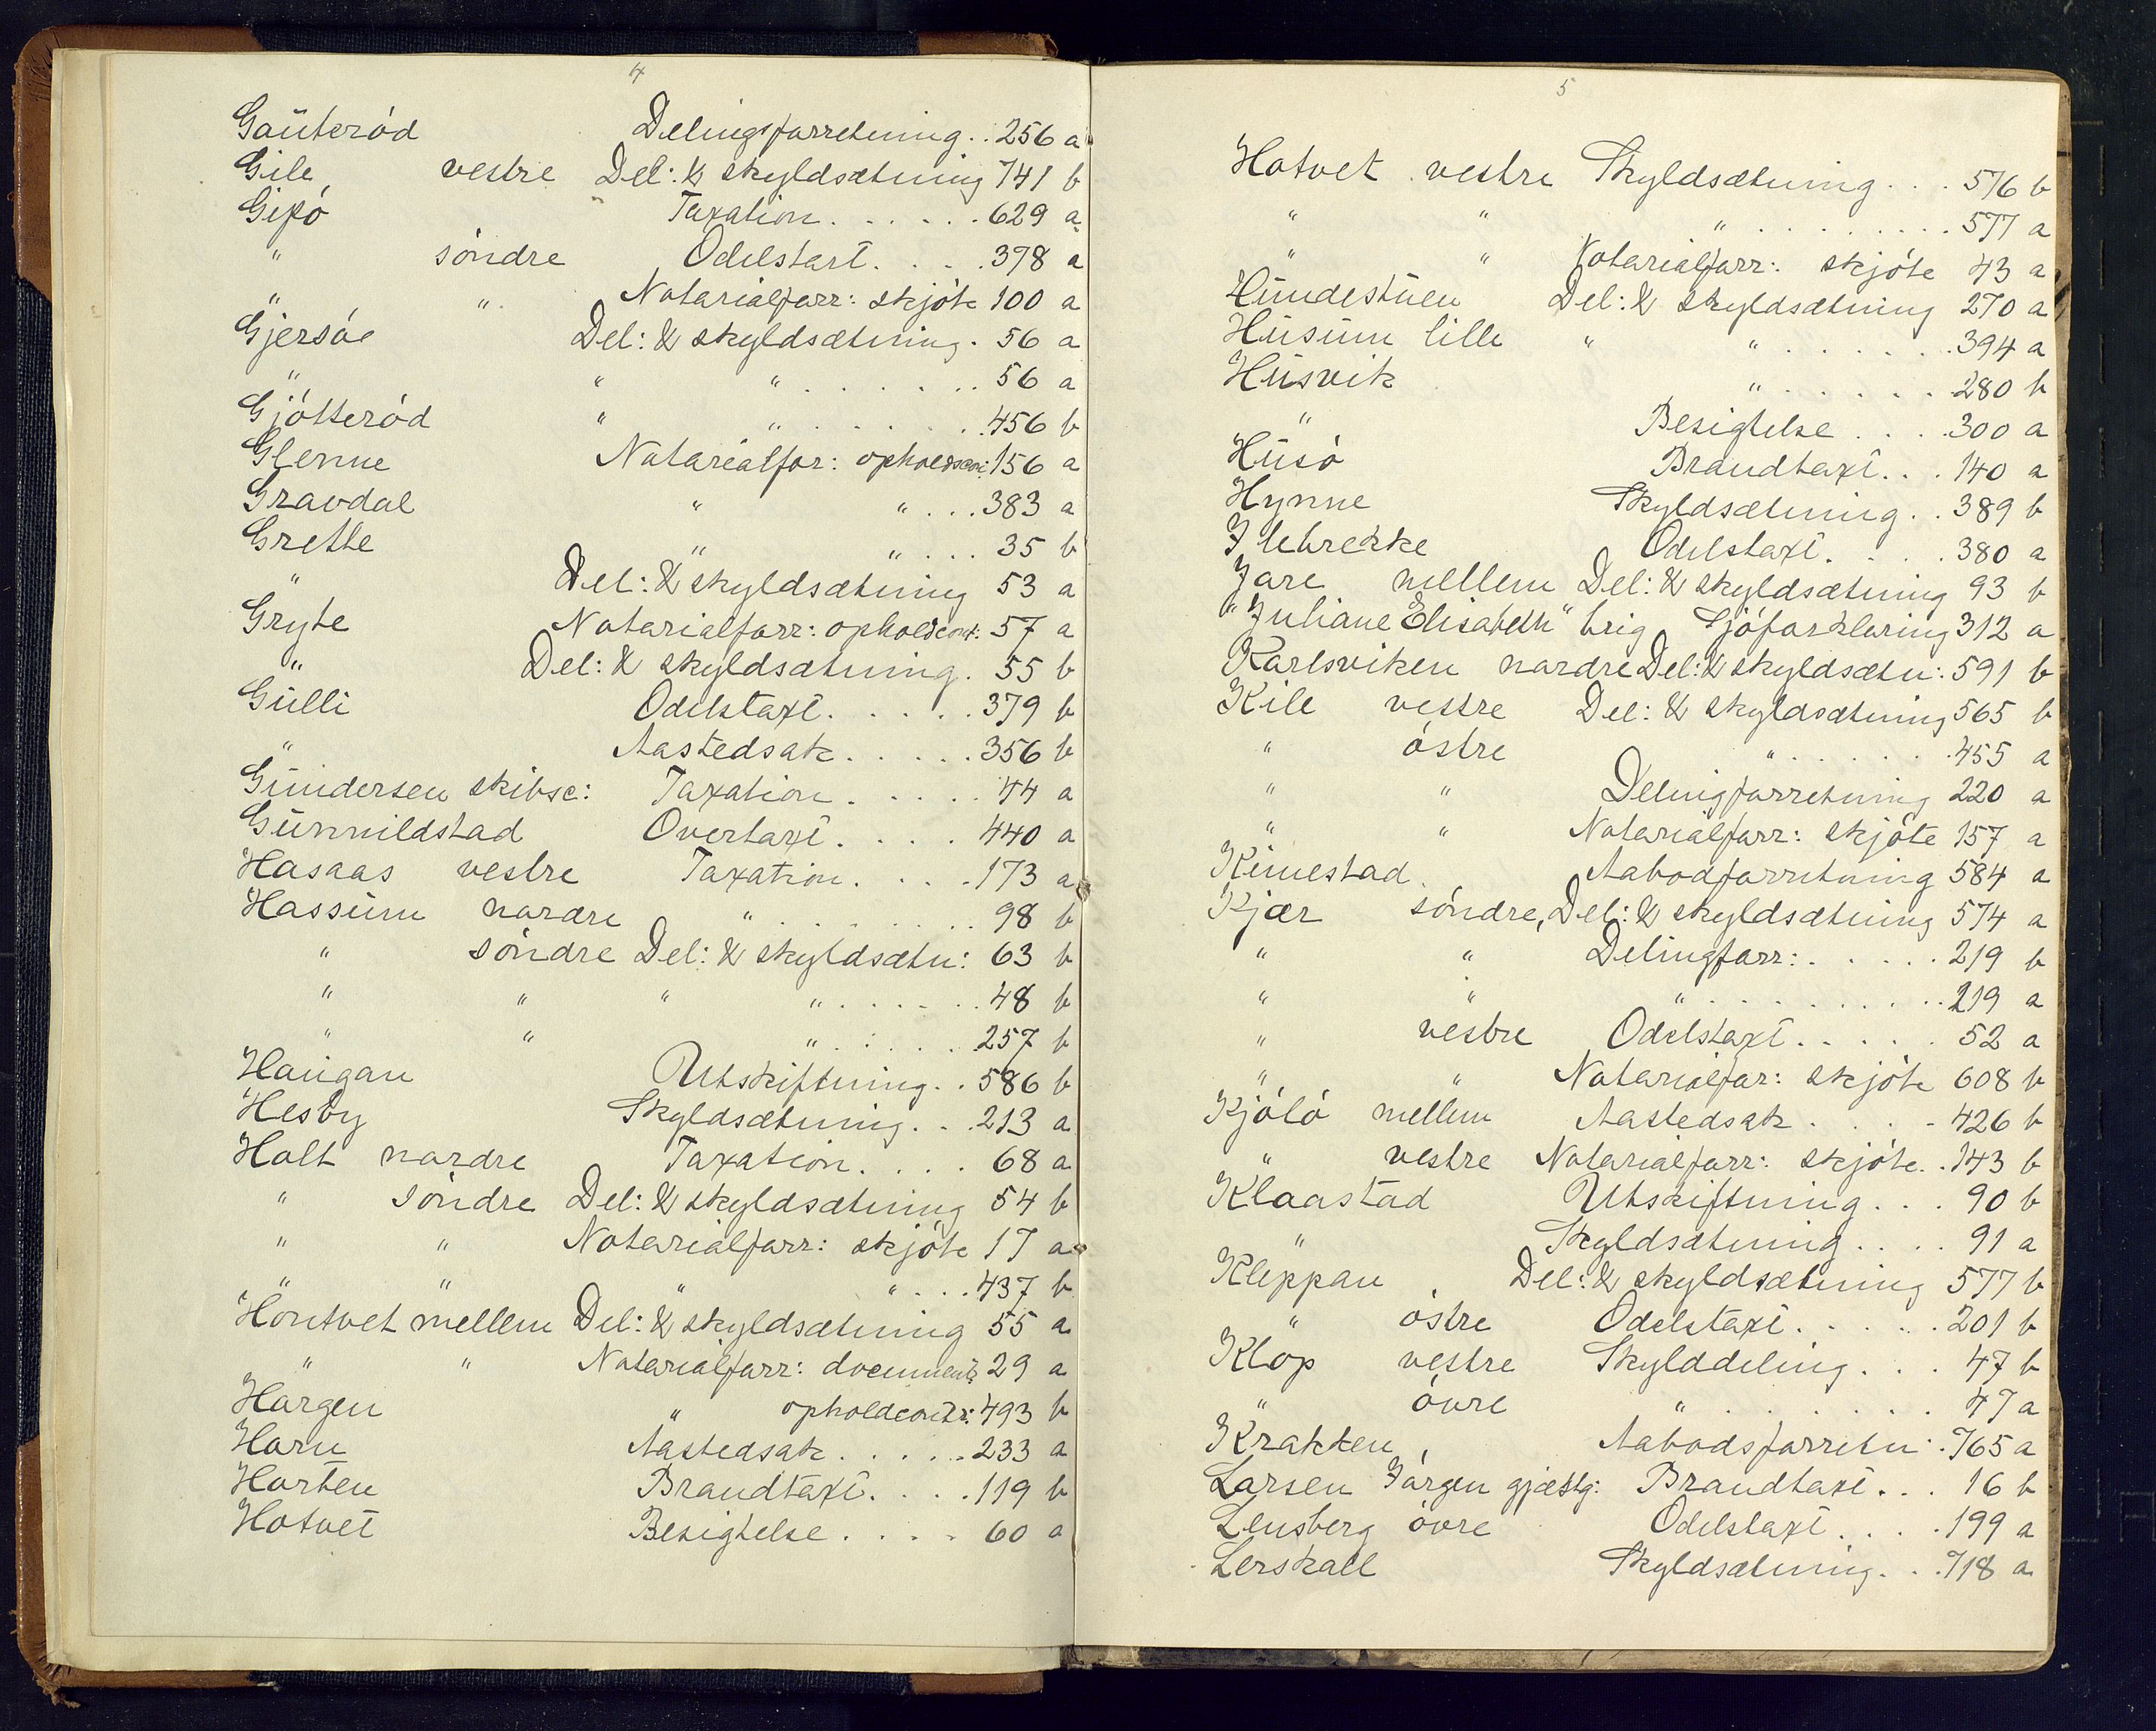 4
Gaüteröd Delingsforretning . . 256 a
Gile vestre Del: & skyldsætning 741 b
Gipö Taxation . . . . . . 629 a
" söndre Odelstaxt . . . . 378 a
" " Notarialforr: skjöte 100 a
Gjersöe Del: & skyldsætning . 56 a
" " " . . . . . . . 56 a
Gjötteröd " " . . . . . . . 456 b
Glenne Notarialfor: opholdscon: 156 a
Gravdal " " . . . 383 a
Grette " " . . . 35 b
" Del: & skyldsætning 53 a
Gryte Notarialforr: opholdcont: 57 a
" Del: & skyldsætning . 55 b
Gülli Odelstaxt . . . . . 379 b
" Aastedsak . . . . . 356 b
Gündersen skibsc: Taxation . . . . . 44 a
Günnildstad Overtaxt . . . . 440 a
Hasaas vestre Taxation . . . . 173 a
Hassüm nordre " . . . . . . . . 98 b
" söndre Del: & skyldsætn: 63 b
" " " " . . . . . . 48 b
" " " . . . . . . 257 b
Haügan Utskiftning . . 586 b
Hesby Skyldsætning . . . 213 a
Holt nordre Taxation . . . . 68 a
" söndre Del: & skyldsætning 54 b
" " Notarialforr: skjöte 17 a
" " " " . . . 437 b
Hontvet mellem Del: & skyldsætning 55 a
" " Notarialforr: document: 29 a
Horgen " opholdcontr: 493 b
Horn Aastedsak . . . . . 233 a
Horten Brandtaxt . . . . 119 b
Hotvet Besigtelse . . . . 60 a
5
Hotvet vestre Skyldsætning . . . 576 b
" " " . . . . . . . . . 577 a
" " Notarialforr: skjöte 43 a
Hündestüen Del: & skyldsætning 270 a
Hüsüm lille " " . . . . . . . 394 a
Hüsvik " . . . . . . . 280 b
" Besigtelse . . . . 300 a
Hüsö Brandtaxt . . . 140 a
Hynne Skyldsætning . . 389 b
Ilebrekke Odelstaxt . . . . 380 a
Jare mellem Del: & skyldsætning 93 b
"Juliane Elisabeth" brig Sjöforklaring 312 a
Karlsviken nordre Del: & skyldsætn: 591 b
Kile vestre Del: & skyldsætning 565 b
" östre " . . . . . . . 455 a
" " Delingforretning 220 a
" " Notarialforr: skjöte 157 a
Kimestad Aabodforretning 584 a
Kjær söndre, Del: & skyldsætning 574 a
" " Delingforr: . . . . . 219 b
" " " . . . . . . . . . . 219 a
" vestre Odelstaxt . . . . . 52 a
" " Notarialfor: skjöte 608 b
Kjölö mellem Aastedsak . . . . 426 b
" vestre Notarialforr: skjöte . . 143 b
Klaastad Utskiftning . . . 90 b
" Skyldsætning . . . . 91 a
Kleppan Del: & skyldsætning 577 b
" östre Odelstaxt . . . . . . 201 b
Klop vestre Skylddeling . . . 47 b
" övre " . . . . . . . . 47 a
Krakken Aabodsforretn: . 765 a
Larsen Jörgen gjæstg: Brandtaxt . . . 16 b
Lensberg övre Odelstaxt . . . . 199 a
Lerskall Skyldsætning . . . 718 a